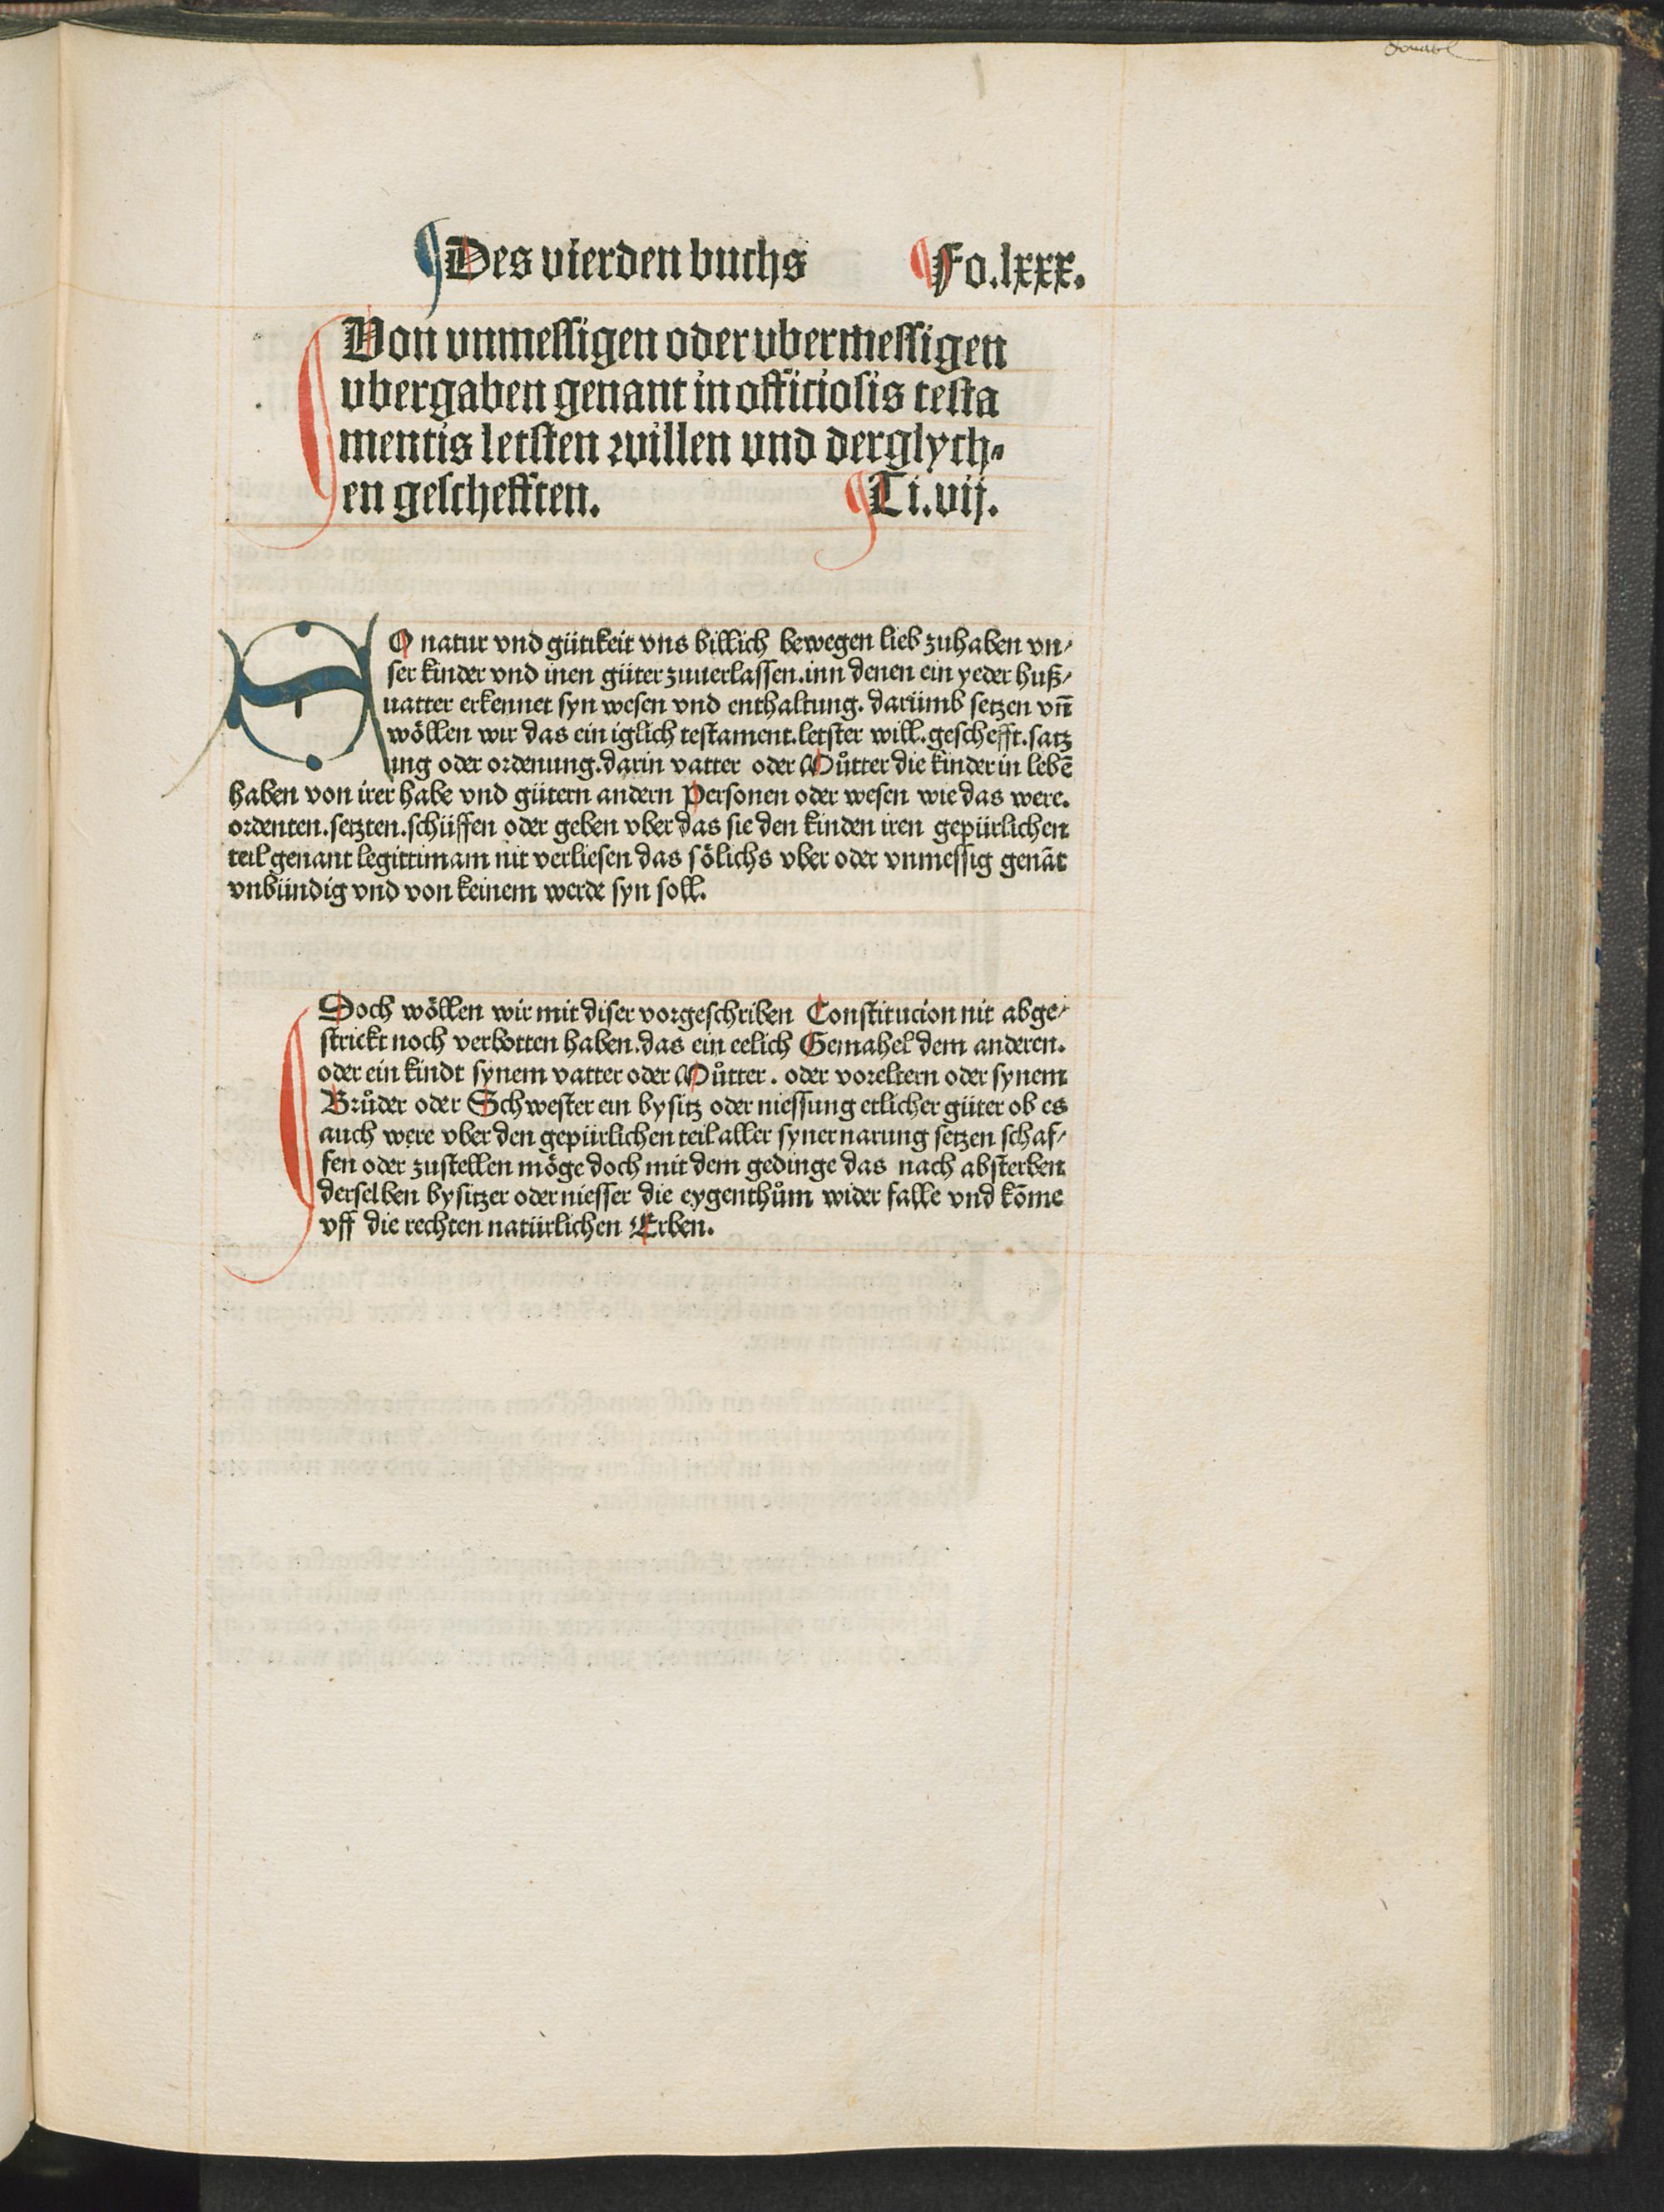 Des vierden buchs Fo.lxxx.
Von vnmessigen oder vbermessigen
vbergaben genant in officiosis testa
mentis letsten willen vnd derglych⸗
en geschefften. Ti.vij.
SO natur vnd gütikeit vns billich bewegen lieb zuhaben vn⸗
ser kinder vnd inen güter zuuerlassen.inn denen ein yeder huß⸗
uatter erkennet syn wesen vnd enthaltung. darümb setzen vñ
wöllen wir das ein iglich testament.letster will.geschefft.satz
ung oder ordenung.darin vatter oder Můtter die kinder in lebē
haben von irer habe vnd gütern andern Personen oder wesen wie das were.
ordenten.setzten.schüffen oder geben vber das sie den kinden iren gepürlichen
teil genant legittimam nit verliesen das sölichs vber oder vnmessig genāt
vnbündig vnd von keinem werde syn soll.
Doch wöllen wir mit diser vorgeschriben Constitucion nit abge⸗
strickt noch verbotten haben.das ein eelich Gemahel dem anderen.
oder ein kindt synem vatter oder Můtter. oder voreltern oder synem
Brůder oder Schwester ein bysitz oder niessung etlicher güter ob es
auch were vber den gepürlichen teil aller syner narung setzen schaf⸗
fen oder zustellen möge doch mit dem gedinge das nach absterben
derselben bysitzer oder niesser die eygenthům wider falle vnd kōme
vff die rechten natürlichen Erben.